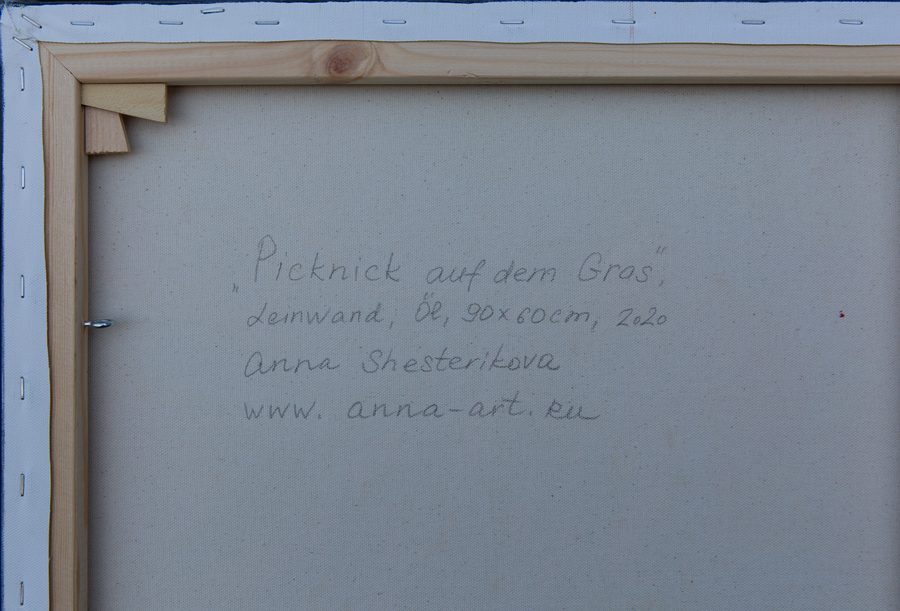 „Picknick auf dem Gras”,
Leinwand, Öl, 90x60cm, 2020
Anna Shesterikova
www.anna-art.ru